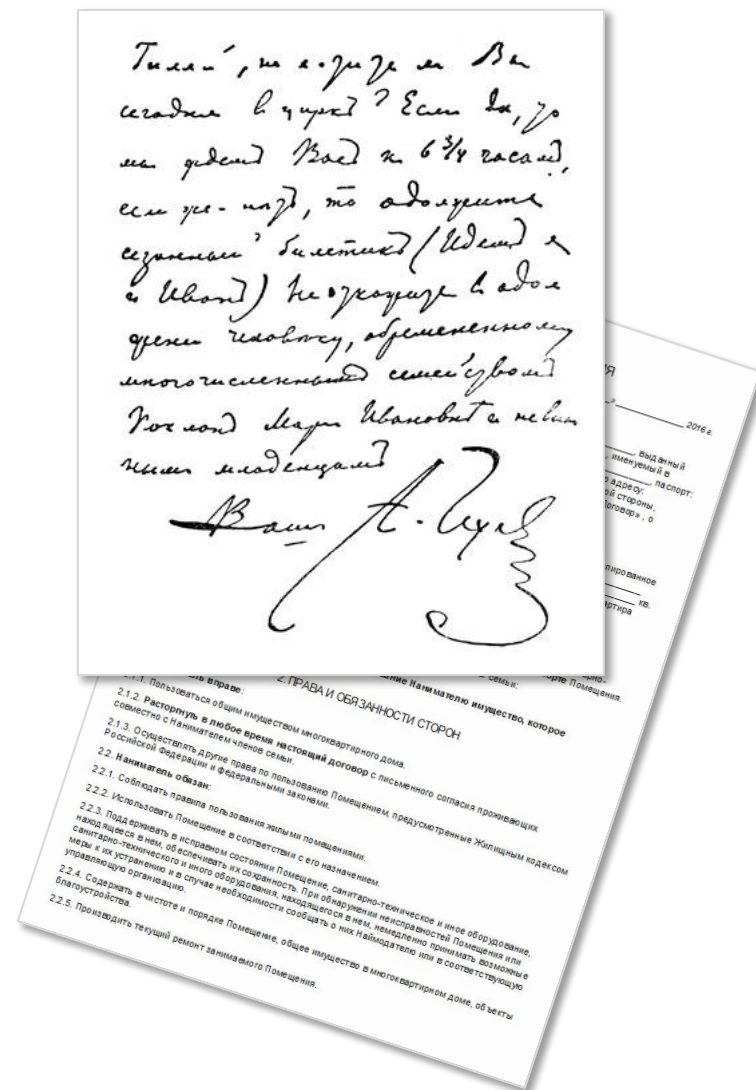 Гиляй, не ли Вы
сегодня в циркъ? Если да, то
мы ждемъ Васъ к 6 3/4 часамъ,
если же - нѣтъ, то одолжите
сезонный билетикъ (Идемъ я
и Иванъ) Не откажите в одол
жении человѣку, обремененному
многочисленнымъ семействомъ
Поклонъ Марьи Ивановнѣ и невин
нымъ младенцамъ
Вашъ А. Чехов
ИЯ
" 2016 г.
, выданный
, именуемый в
, паспорт:
о адресу:
ой стороны,
Договор» , о
лированное
кв.
артира
рно-
орте Помещения.
семьи:
ание Нанимателю имущество, которое
2. ПРАВА И ОБЯЗАННОСТИ СТОРОН
ль вправе:
2.1.1. Пользоваться общим имуществом многоквартирного дома.
2.1.2. Расторгнуть в любое время настоящий договор с письменного согласия проживающих
совместно с Нанимателем членов семьи.
2.1.3. Осуществлять другие права по пользованию Помещением, предусмотренные Жилищным кодексом
Российской Федерации и федеральными законами.
2.2. Наниматель обязан:
2.2.1. Соблюдать правила пользования жилыми помещениями.
2.2.2. Использовать Помещение в соответствии с его назначением.
2.2.3. Поддерживать в исправном состоянии Помещение, санитарно-техническое и иное оборудование,
находящееся в нем, обеспечивать их сохранность. При обнаружении неисправностей Помещения или
санитарно-технического и иного оборудования, находящегося в нем, немедленно принимать возможные
меры к их устранению и в случае необходимости сообщать о них Наймодателю или в соответствующую
управляющую организацию.
2.2.4. Содержать в чистоте и порядке Помещение, общее имущество в многоквартирном доме, объекты
благоустройства.
2.2.5. Производить текущий ремонт занимаемого Помещения.